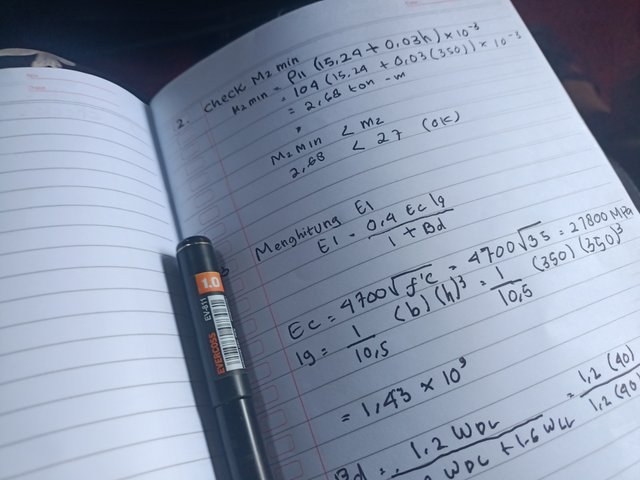 2. Check M2 min
M2 min = P11 (15,24 + 0,03h) x 10-3
= 104 (15,24 + 0,03 (350)) x 10-3
= 2,68 ton-m
M2 min < M2
2,68 < 27 (OK)
Menghitung EI
EI = 0,4 Ec Ig
1 + Bd
Ec = 4700√f'c = 4700√35 = 27800 MPa
Ig = 1/10,5 (b) (h)3 = 1/10,5 (350) (350)3
= 1,43 x 109
Bd = 1,2 WDL = 1,2 (40)
WDL + 1.6 WLL 1,2 (40)
1.0
EV-811
EVERCOSS